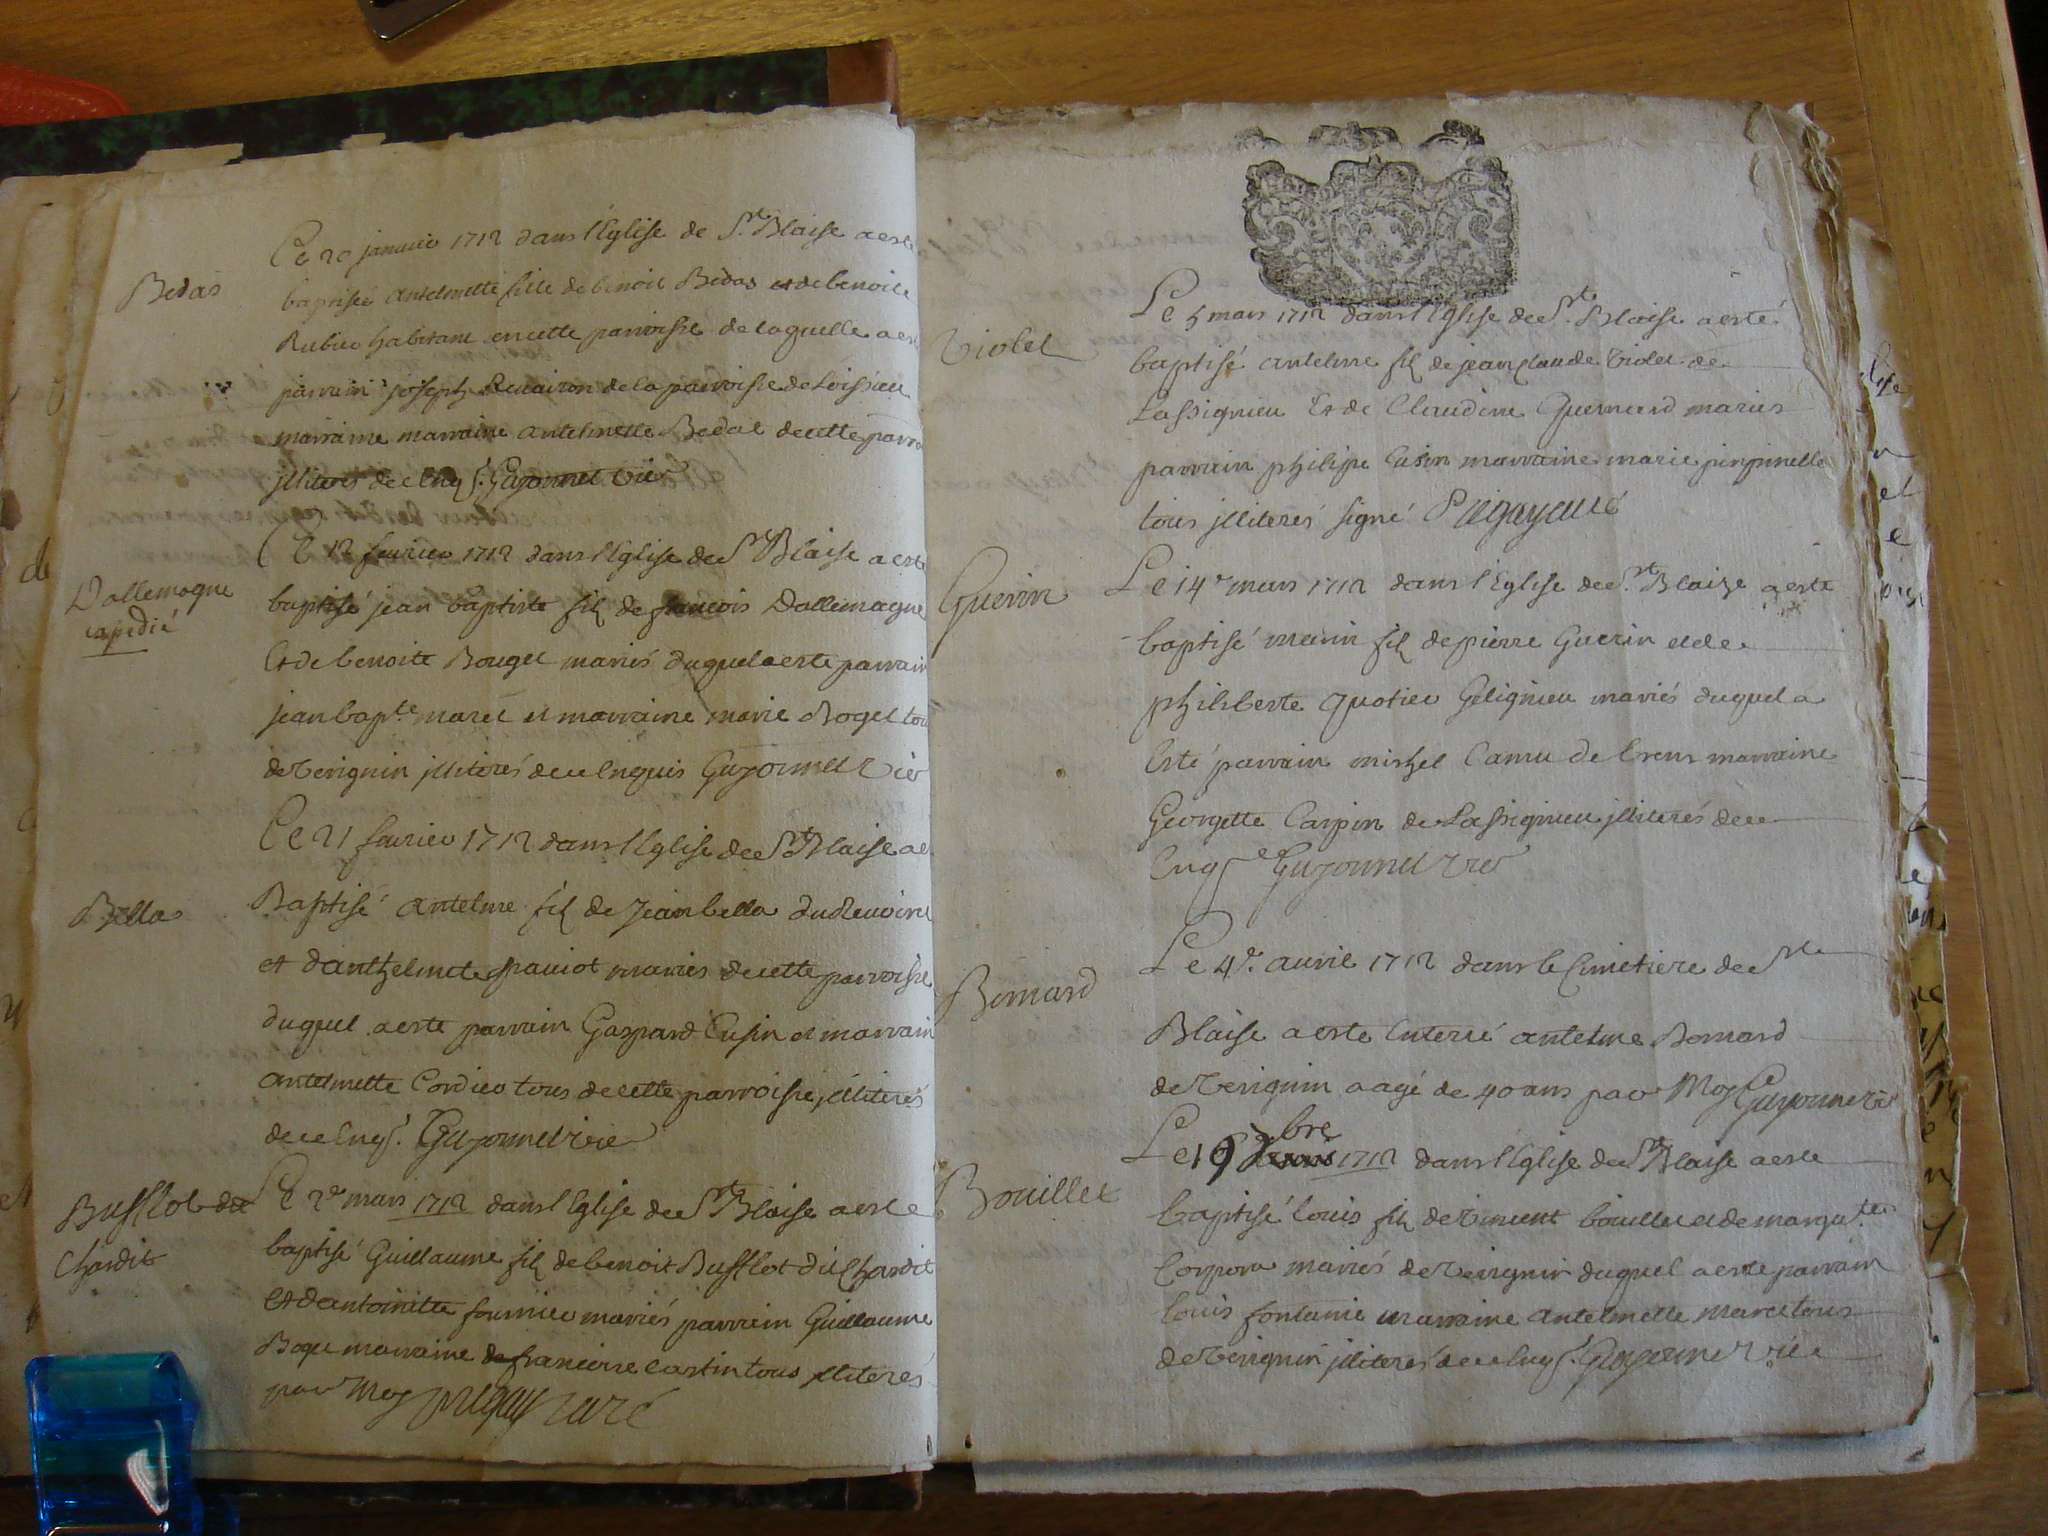 Bedas
Le 20 janvier 1712 dans l'Eglise de St. Blaise a este
baptisée antelmette fille de benoit Bedas et de benoite
Rubieu habitant en cette parroisse de laquelle a est
parrain joseph Revairon de la parroisse de Loissieu
marraine marraine antelmette Bedat de cette parro
jlliteres de ce enq. Guyonnet vic
Dallemogne
expedié
Le 12 fevrier 1712 dans l'Eglise de St Blaise a este
baptisé jean baptiste fil de francois Dallemagne
Et de benoite Bouget mariés duquel a este parrain
jean bapte. maret et marraine marie Roget tou
de virignin jlliterés de ce enquis Guyonnet vic
Bella
Le 21 fevrier 1712 dans l'Eglise de St Blaise a e
Baptisé antelme fil de Jean bella du
et d'anthelmete paviot mariés de cette parroisse
duquel a este parrain Gaspard Cusin et marrain
antelmette Cordier tous de cette parroisse jlliterés
de ce enq. Guyonnet vic
Bufflot dit
Chardit
Le 2e mars 1712 dans l'Eglise de St Blaise a este
baptisé Guillaume fil de benoit Bufflot dit Chardit
et d'antoinette fournier mariés parrain Guillaume
marraine francoise castin tous jlliterés
par moy curé
Violet
Le 5 mars 1712 dans l'Eglise de St. Blaise a esté
baptisé antelme fil de jean claude violet de
Lassignieu Et de Claudine Quemard mariés
parrain philippe Cusin marraine marie pinpinelle
tous jlliterés signé curé
Guerin
Le 14e mars 1712 dans l'Eglise de St. Blaize a este
baptisé marin fil de pierre Guerin et de
philiberte Quotieu Gelignieu mariés duquel a
Esté parrain michel Camu de brens marraine
Georgette Carpin de Lassignieu jlliterés de ce
Enq Guyonnet vic
Bornard
Le 4e. avril 1712 dans le Cimetiere de St
Blaise a este Enterré antelme Bornard
de virignin aagé de 40 ans par Moy Guyonnet vic
Bouillet
Le 19 bre 1712 dans l'Eglise de St Blaise a este
baptisé louis fil de vincent bouillet et de margute.
Corpora mariés de virignin duquel a este parrain
louis fontanie marraine antelmette maret tous
de virignin jlliterés de ce enq. Guyonnet vic